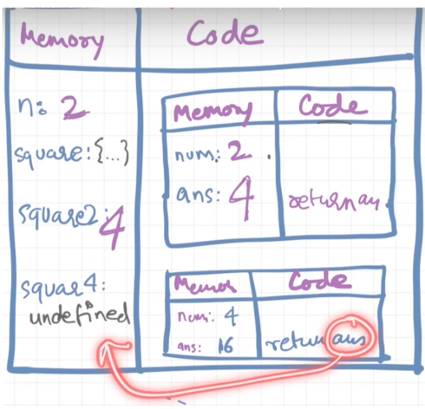 Memory
Code
n: 2
square: {...}
square2: 4
squar4:
undefined
Memory
Code
num: 2 .
ans: 4
return an
Memor
Code
num: 4
ans: 16
return ans